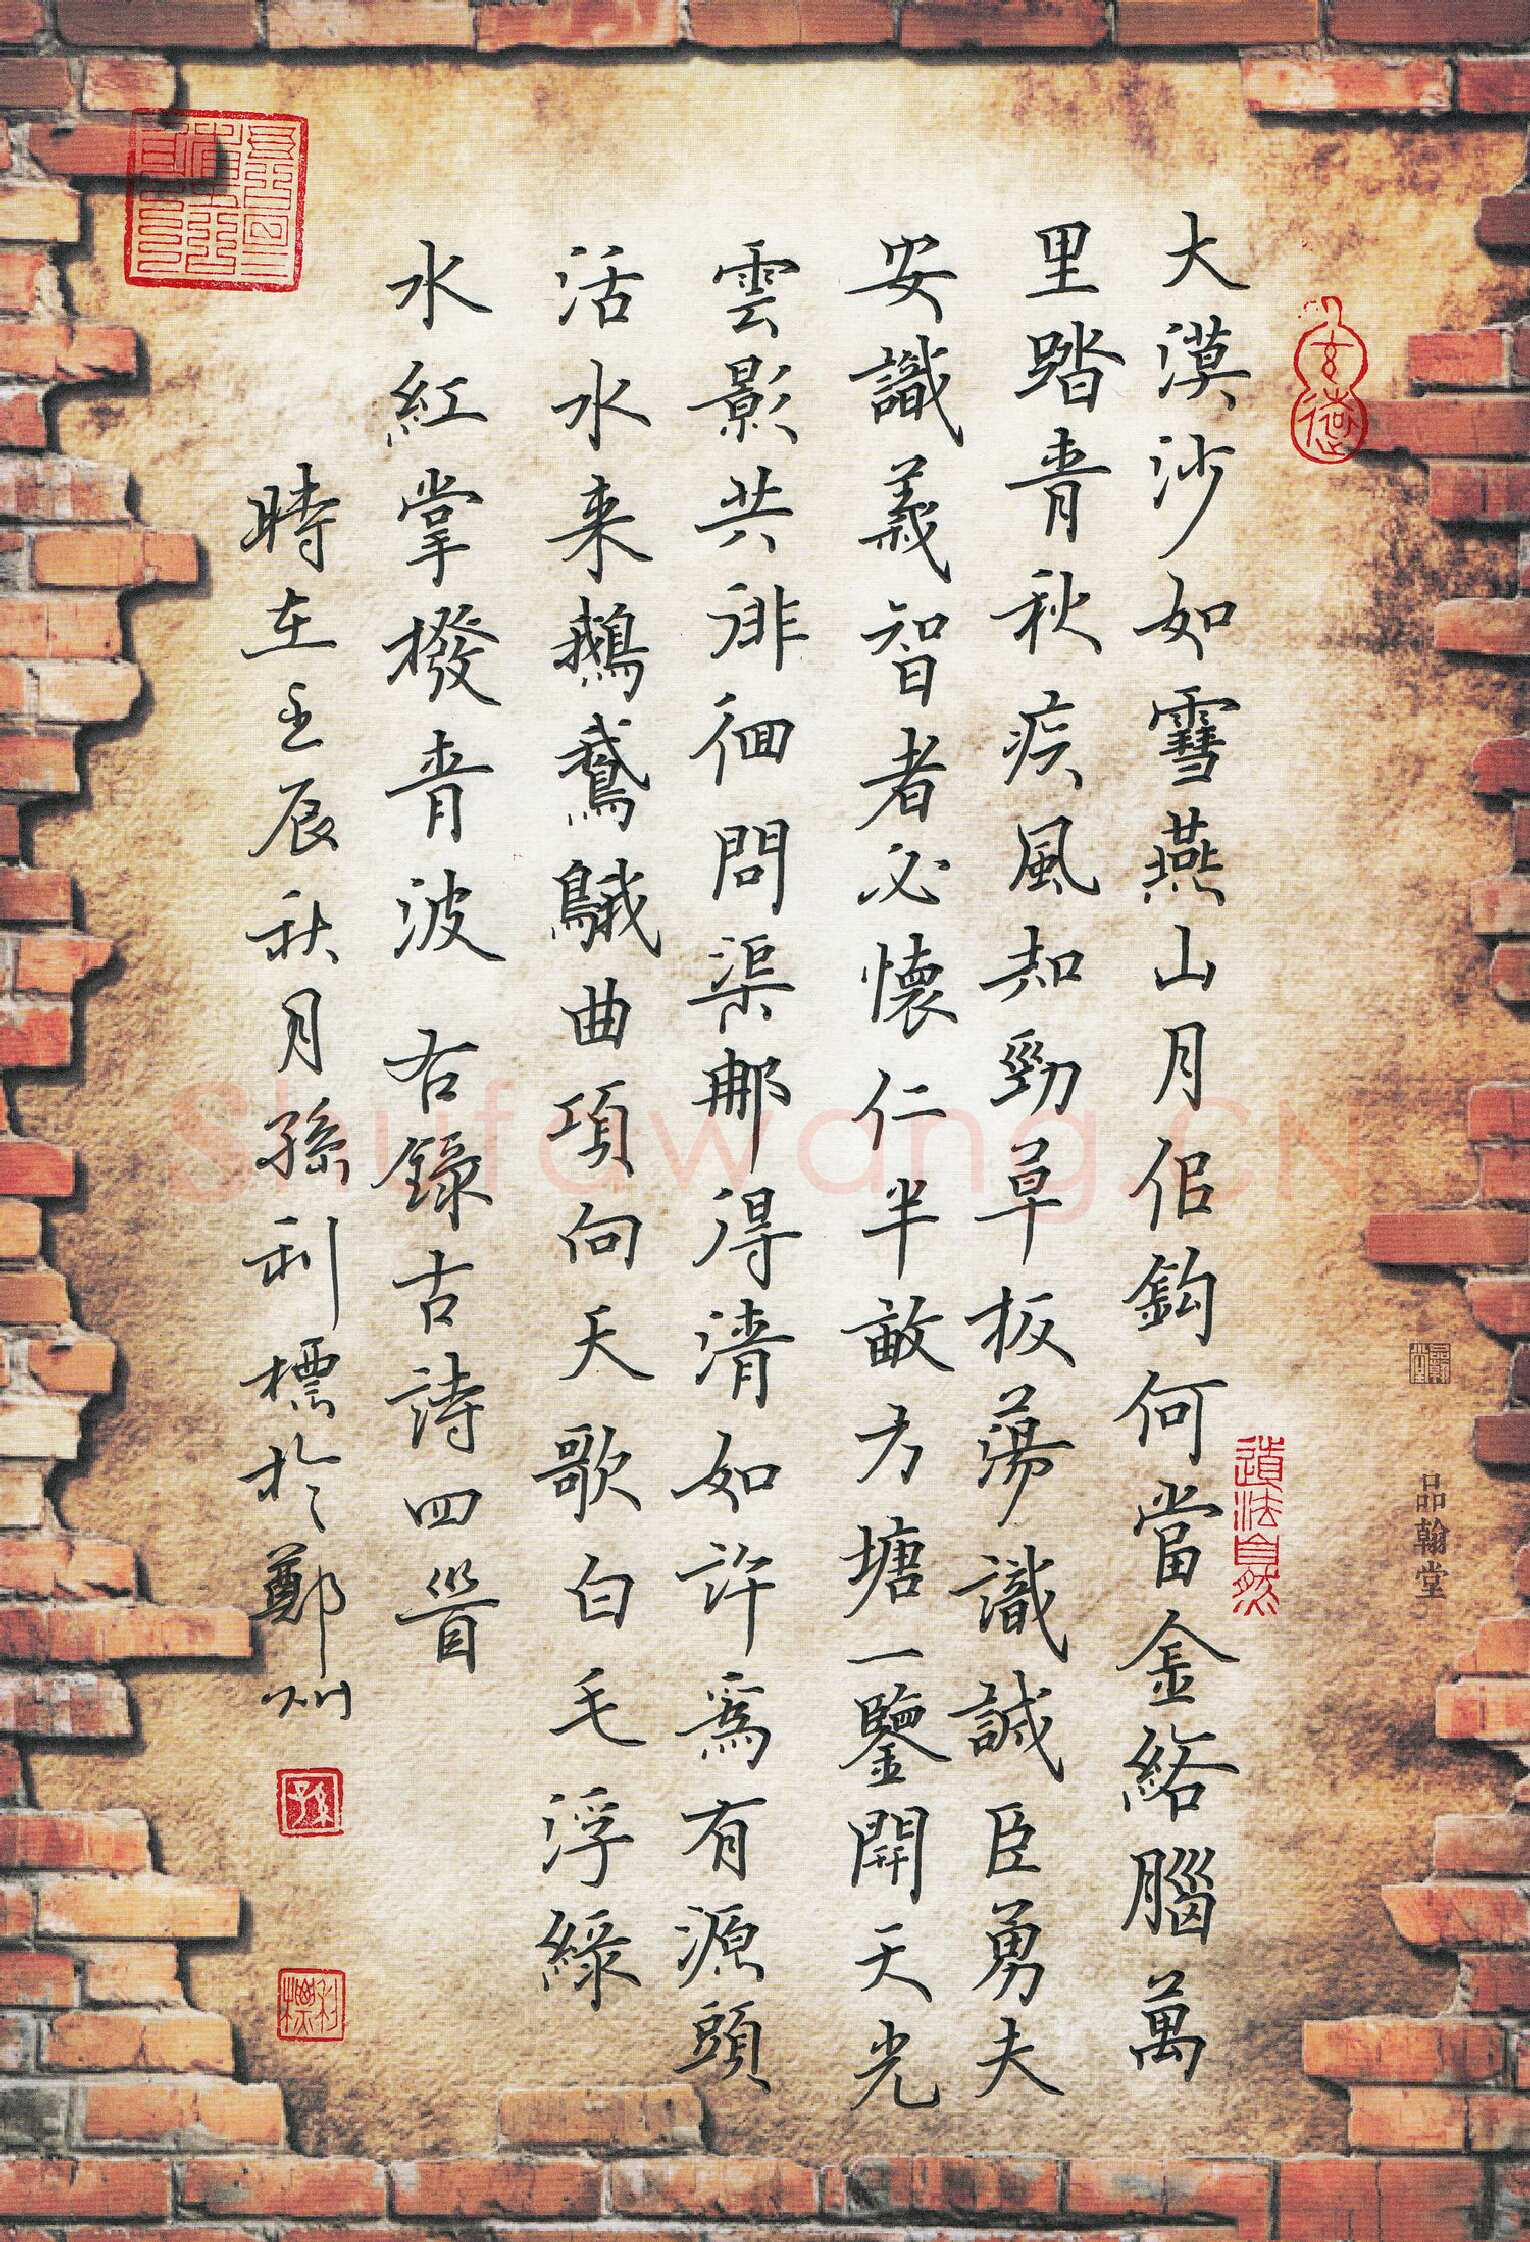 大漠沙如雪燕山月佀鈎何當金絡腦萬
里踏青秋疾風知勁草板蕩識誠臣勇夫
安識義智者必懷仁半畝方塘一鑒開天光
雲影共徘徊問渠那得清如許爲有源頭
活水来鵝鵞䳘曲項向天歌白毛浮綠
水紅掌撥青波 右錄古詩四首
時在壬辰秋月孫利標於鄭州
孫
利標
道法自然
品翰堂
shufawang.CN